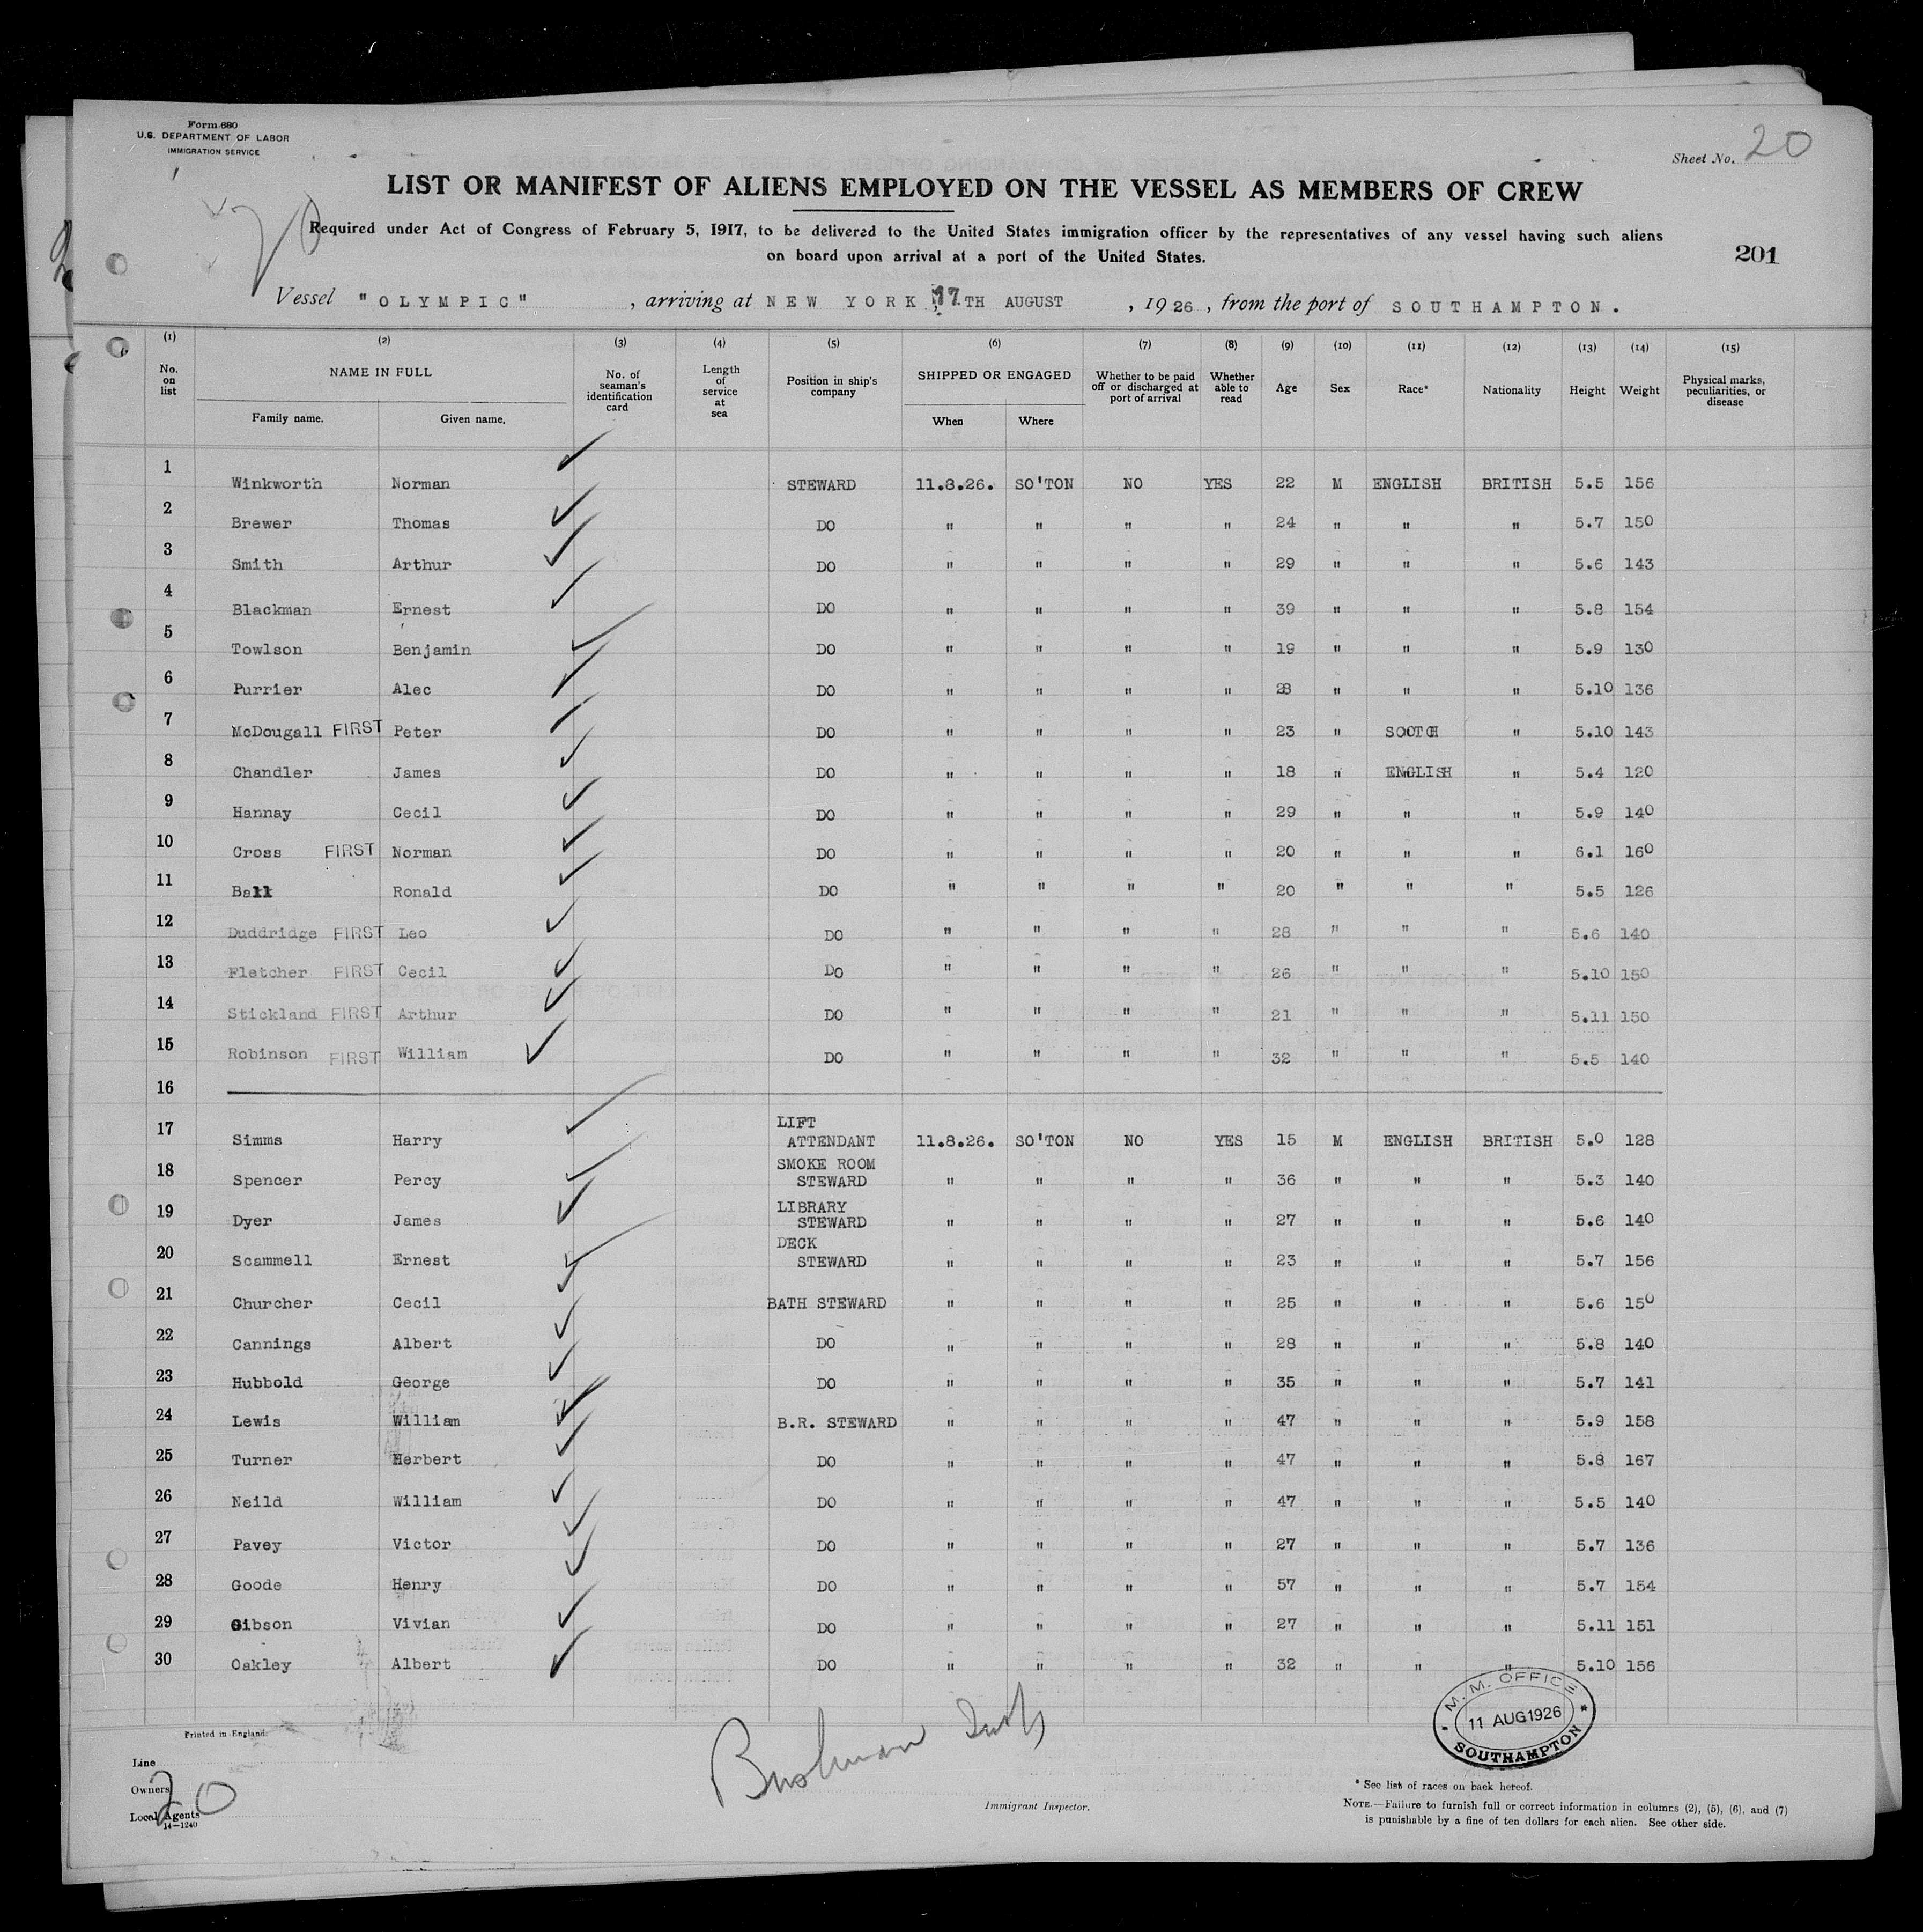 Form 680
U.S. DEPARTMENT OF LABOR
IMMIGRATION SERVICE
Sheet No. 20
LIST OR MANIFEST OF ALIENS EMPLOYED ON THE VESSEL AS MEMBERS OF CREW
Required under Act of Congress of February 5, 1917, to be delivered to the United States immigration officer by the representatives of any vessel having such aliens
on board upon arrival at a port of the United States.
201
Vessel "OLYMPIC", arriving at NEW YORK, 17TH AUGUST, 1926, from the port of SOUTHAMPTON.
(1) (2) (3) (4) (5) (6) (7) (8) (9) (10) (11) (12) (13) (14) (15)
No. on list NAME IN FULL Family name. Given name. No. of seaman's identification card Length of service at sea Position in ship's company SHIPPED OR ENGAGED When Where Whether to be paid off or discharged at port of arrival Whether able to read Age Sex Race* Nationality Height Weight Physical marks, peculiarities, or disease
1 Winkworth Norman STEWARD 11.8.26. SO'TON NO YES 22 M ENGLISH BRITISH 5.5 156
2 Brewer Thomas DO " " " " 24 " " " 5.7 150
3 Smith Arthur DO " " " " 29 " " " 5.6 143
4 Blackman Ernest DO " " " " 39 " " " 5.8 154
5 Towlson Benjamin DO " " " " 19 " " " 5.9 130
6 Purrier Alec DO " " " " 28 " " " 5.10 136
7 McDougall FIRST Peter DO " " " " 23 " SCOTCH " 5.10 143
8 Chandler James DO " " " " 18 " ENGLISH " 5.4 120
9 Hannay Cecil DO " " " " 29 " " " 5.9 140
10 Cross FIRST Norman DO " " " " 20 " " " 6.1 160
11 Ball Ronald DO " " " " 20 " " " 5.5 126
12 Duddridge FIRST Leo DO " " " " 28 " " " 5.6 140
13 Fletcher FIRST Cecil DO " " " " 26 " " " 5.10 150
14 Stickland FIRST Arthur DO " " " " 21 " " " 5.11 150
15 Robinson FIRST William DO " " " " 32 " " " 5.5 140
16
17 Simms Harry LIFT ATTENDANT 11.8.26. SO'TON NO YES 15 M ENGLISH BRITISH 5.0 128
18 Spencer Percy SMOKE ROOM STEWARD " " " " 36 " " " 5.3 140
19 Dyer James LIBRARY STEWARD " " " " 27 " " " 5.6 140
20 Scammell Ernest DECK STEWARD " " " " 23 " " " 5.7 156
21 Churcher Cecil BATH STEWARD " " " " 25 " " " 5.6 150
22 Cannings Albert DO " " " " 28 " " " 5.8 140
23 Hubbold George DO " " " " 35 " " " 5.7 141
24 Lewis William B.R. STEWARD " " " " 47 " " " 5.9 158
25 Turner Herbert DO " " " " 47 " " " 5.8 167
26 Neild William DO " " " " 47 " " " 5.5 140
27 Pavey Victor DO " " " " 27 " " " 5.7 136
28 Goode Henry DO " " " " 57 " " " 5.7 154
29 Gibson Vivian DO " " " " 27 " " " 5.11 151
30 Oakley Albert DO " " " " 32 " " " 5.10 156
M.M. OFFICE
11 AUG 1926
SOUTHAMPTON
Printed in England.
Line
Owners
Local Agents
20
14—1240
Immigrant Inspector.
* See list of races on back hereof.
NOTE.—Failure to furnish full or correct information in columns (2), (5), (6), and (7)
is punishable by a fine of ten dollars for each alien. See other side.